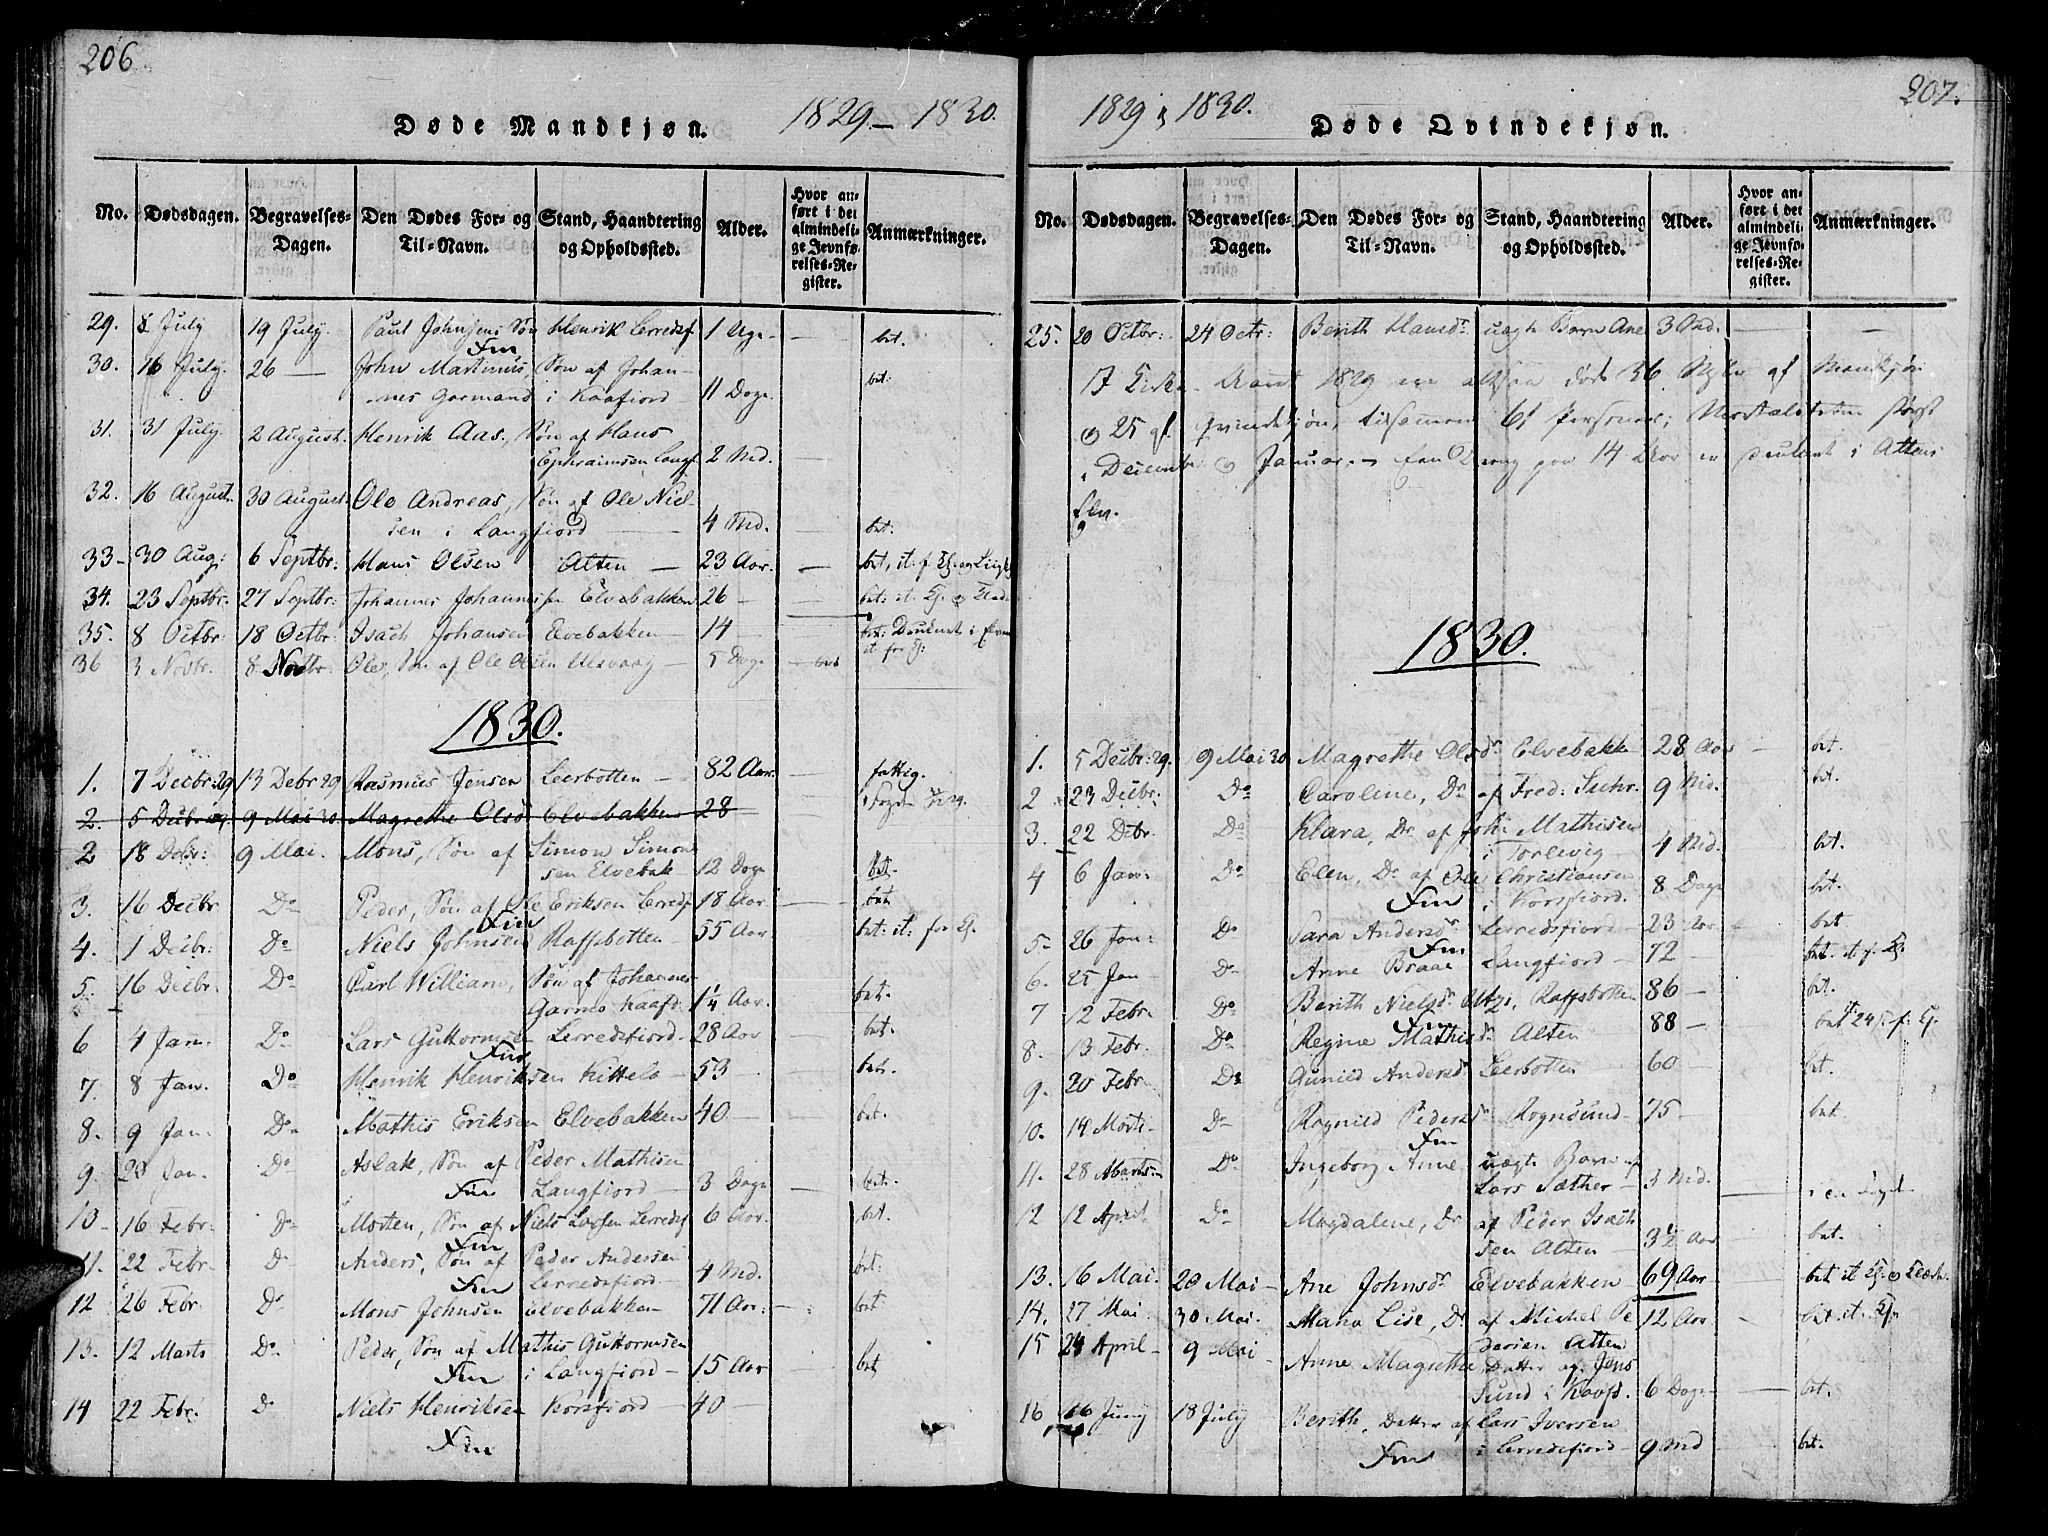 206
Døde Mandkjøn.
1829 - 1830.
No.
Dødsdagen.
Begravelses-Dagen.
Den Dødes For- og Til-Navn.
Stand, Haandtering og Opholdssted.
Alder.
Hvor anført i det almindelige Jevnførelses-Register.
Anmærkninger.
29. 8 July 19 July. Paul Johnsens Søn Henrik Lerredsf 1 Uge - bet.
Fin
30. 16 July. 26 — John Martinus, Søn af Johan-
nes Garmand i Kaafiord 11 Dage bet:
31. 31 July. 2 August. Henrik Aas, Søn af Hans
Ephraimsen Langf. 2 Md.
32. 16 August. 30 August Ole Andreas, Søn af Ole Niel-
sen i Langfiord 4 Md. bet:
33- 30 Aug: 6 Septbr: Hans Olsen Alten — 23 Aar. —
34. 23 Septbr. 27 Septbr: Johannes Johannessen Elvebakken 26 -
35. 8 Octbr: 18 Octbr: Isach Johansen Elvebakken — 14
36 3 Novbr. 8 Novbr. Ole, Søn af Ole Olsen Ulsvaag — 5 Dage — bet
1830.
1. 7 Decbr: 29 13 Debr 29 Rasmus Jensen Leerbotten — 82 Aar. fattig.
2. 5 Decbr 29. 9 Mai 30. Magrethe Olsd Elvebakken 28
2 18 Debr: 9 Mai. Mons, Søn af Simon Simon
sen Elvebak 12 Dage bet.
3. 16 Decbr Do Peder, Søn af Ole Eriksen Lerredsf 18 Aar. bet
Fin
4. 1 Decbr: Do Niels Johnsen Raffsbotten 55 Aar. bet: it: for
5. 16 Decbr. Do Carl William, Søn af Johannes
Garmo Kaaf: 1/4 Aar. bet.
6 4 Jan: Do Lars Guttormsen Lerredsfiord. 28 Aar bet.
Fin
7. 8 Jan. Do Henrik Henriksen Kittelo — 53 — bet.
8. 9 Jan: Do Mathis Eriksen Elvebakken 40 — bet.
9. 20 Jan. Do Aslak, Søn af Peder Mathisen
Fin Langfiord — 3 Dage — bet.
10 - 16 Febr: Do Morten, Søn af Niels Larsen Lerredsf 6 Aar. bet.
Fin
11. 22 Febr. Do Anders, Søn af Peder Andersen
Fin Lerredsfiord — 4 Md. bet:
12 26 Febr Do Mons Johnsen Elvebakken 71 Aar: — bet:
13. 12 Marts Do Peder, Søn af Mathis Guttormsen
Fin i Langfiord — 15 Aar bet
14 22 Febr. Do Niels Henriksen Korsfiord — 40 —
Fin
207.
1829 & 1830.
Døde Qvindekjøn.
No.
Dødsdagen.
Begravelses-Dagen.
Den Dødes For- og Til-Navn.
Stand, Haandtering og Opholdssted.
Alder.
Hvor anført i det almindelige Jevnførelses-Register.
Anmærkninger.
25. 20 Octbr: 24 Octr: Berith Hansdr uægte Barn Ane 3 Md. — —
Aaret 1829 ere altsaa døde 36 af Mandkjøn
og 25 af Qvindekjøn, tilsammen 61 Personer;
i December og Januar. — en Dreng paa 14 Aar er druknet i Altens
Elv.
1830.
1. 5 Decbr: 29. 9 Mai 30 Magrethe Olsdr Elvebakk 28 Aar — bet.
2 23 Decbr: Do Caroline, Dr af Fred: Suhr. 9 Md. bet.
3. 22 Debr. Do Klara, Dr af Joh: Mathisen
i Torlevig — 4 Md. bet.
4 6 Jan: Do Elen, Dr af Ole Christiansen
Fin i Korsfiord. 8 Dage bet.
5- 26 Jan: Do Sara Andersdr Lerredsfiord — 23 Aar bet
Fin
6. 25 Jan Do Anne Braae Langfiord — 72 — bet. it f.
7 12 Febr. Do Berith Nielsdr Utzi, Raffsbotten 86 — bet.
Fin
8. 13 Febr. Do Regine Mathisdr Alten 88 — bet
9. 20 Febr Do Gunild Andersdr Leerbotten — 60 — bet.
10. 14 Marts — Do Ragnild Pedersdr Rognsund — 75 — bet.
Fin
11. 28 Marts — Do Ingeborg Anne uægte Barn af
Lars Sæther — 3 Md.
12 12 April Do Magdalene, Dr af Peder Isach
sen Alten — 3 1/2 Aar bet.
13. 16 Mai. 20 Mai — Ane Johnsdr Elvebakken 69 Aar
14. 27 Mai 30 Mai. Maria Lise, Dr af Michel Pe 12 Aar - bet it.
dersen Alten
15 24 April — 9 Mai — Anne Magrethe Datter af Jens
Sund i Kaafd. 6 Dage — bet.
16 16 Juny 18 July — Berith, Datter af Lars Iversen
Fin i Lerredsfiord — 9 Md — bet.